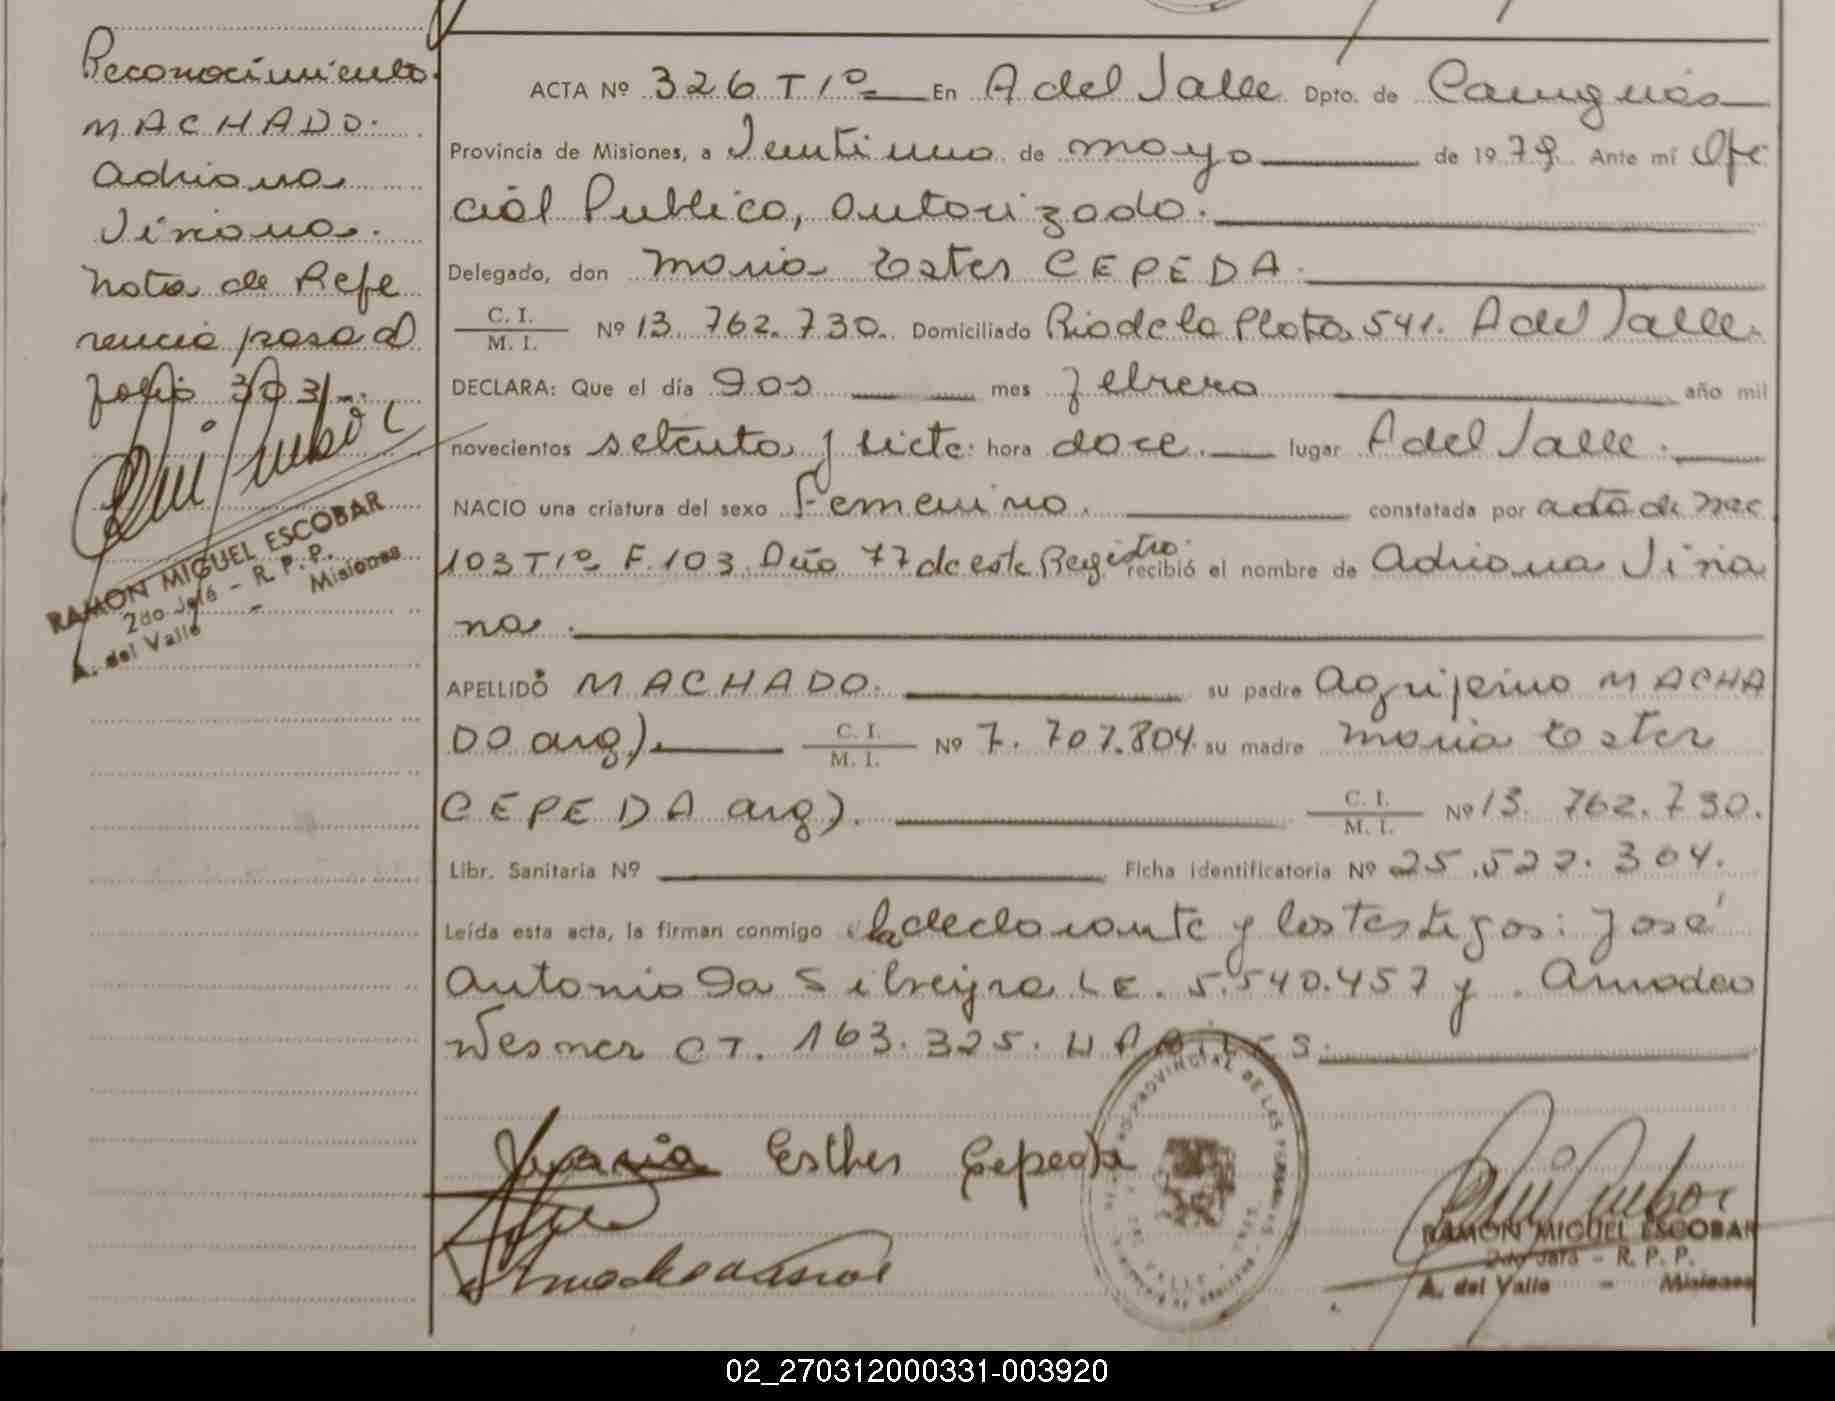 Reconocimiento
MACHADO.
Adriana
Viviana.
Nota de Refe
rencia pasa al
folio 303/-.
RAMON MIGUEL ESCOBAR
2do Jefe - R. P. P.
A. del Valle - Misiones
ACTA Nº 326 T 1º En A del Valle Dpto. de Cainguás
Provincia de Misiones, a Veintiuno de mayo de 1979. Ante mí Ofi
cial Publico, autorizado.
Delegado, don Maria Ester CEPEDA.
C. I. / M. I. Nº 13.762.730. Domiciliado Rio de la Plata 541. A del Valle.
DECLARA: Que el día Dos mes febrero año mil
novecientos setenta y siete. hora doce. lugar A del Valle.
NACIO una criatura del sexo Femenino. constatada por acta de nac
103 T 1º F. 103 Año 77 de este Registro. recibió el nombre de Adriana Vivia
na.
APELLIDO MACHADO. su padre Agripino MACHA
DO arg). C. I. / M. I. Nº 7.707.804. su madre Maria Ester
CEPEDA arg). C. I. / M. I. Nº 13.762.730.
Libr. Sanitaria Nº Ficha identificatoria Nº 25.522.304.
Leída esta acta, la firman conmigo la declarante y los testigos: José
Antonio Da Silveyra L E. 5.540.457 y Amadeo
Wesner CI. 163.325. HABILES.
Maria Esther Cepeda
RAMON MIGUEL ESCOBAR
2do Jefe - R. P. P.
A. del Valle - Misiones
02_270312000331-003920